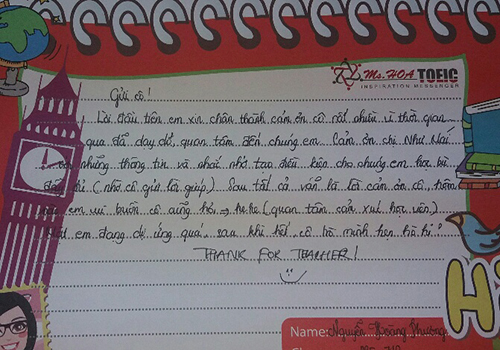 Ms. HOA TOEIC
INSPIRATION MESSENGER
Gửi cô!
Lời đầu tiên em xin chân thành cảm ơn cô rất nhiều vì thời gian
qua đã dạy dỗ, quan tâm đến chúng em. Cảm ơn chị Như
những thông tin và nhắc nhở tạo điều kiện cho chúng em học bù
đầy đủ (nhờ cô gửi lời giúp). Sau tất cả vẫn là lời cảm ơn cô, hôm
em vui buồn cô cũng hỏi → hehe (quan tâm cảm xúc học viên)
em đang dị ứng quá, sau khi hết cô trò mình hẹn hò hì?
THANK FOR TEACHER!
Hi
Name: Nguyễn Hoàng Phương